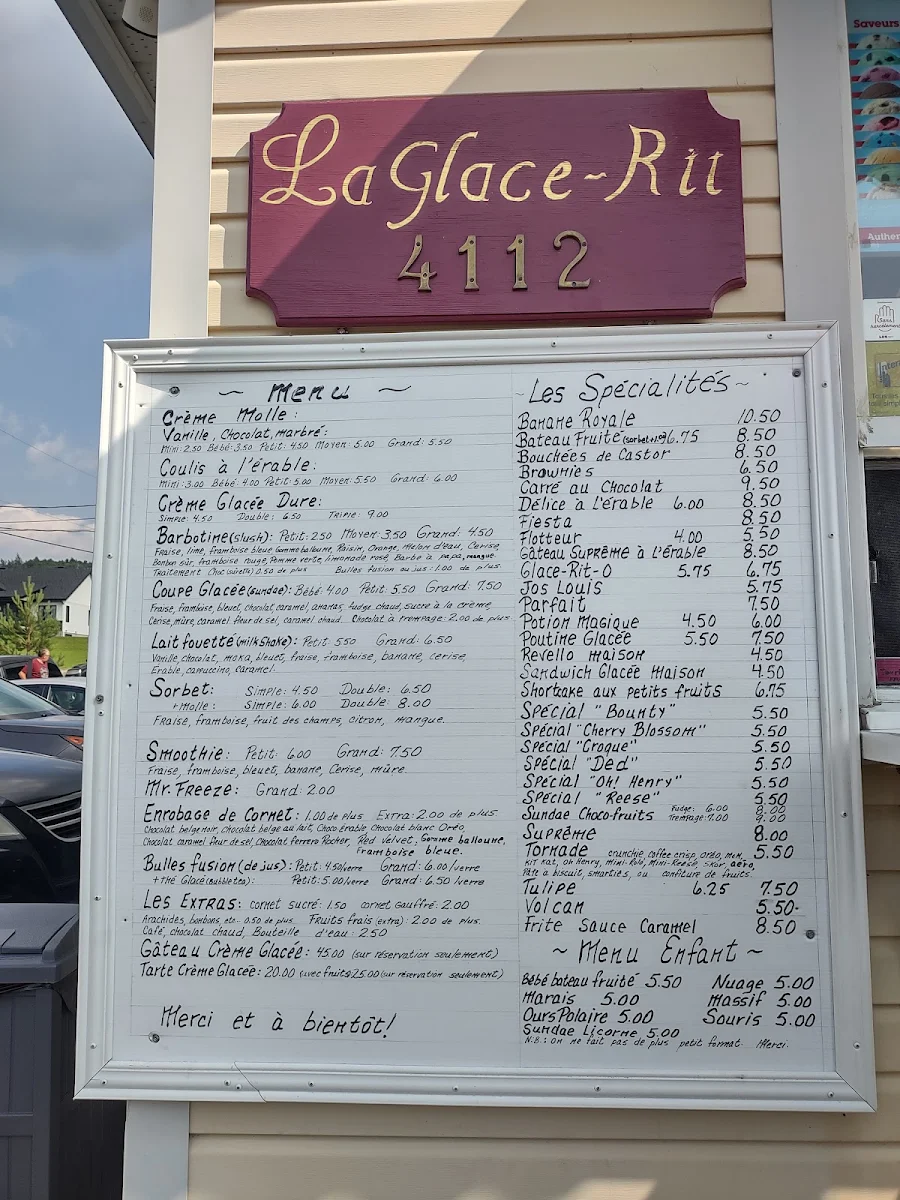 La Glace-Rit
4112
~ Menu ~
Crème Molle:
Vanille, Chocolat, marbré:
Mini: 2.50 Bébé: 3.50 Petit: 4.50 Moyen: 5.00 Grand: 5.50
Coulis à l'érable:
Mini: 3.00 Bébé: 4.00 Petit: 5.00 Moyen: 5.50 Grand: 6.00
Crème Glacée Dure:
Simple: 4.50 Double: 6.50 Triple: 9.00
Barbotine (slush): Petit: 2.50 Moyen: 3.50 Grand: 4.50
Fraise, lime, framboise bleue Gomme balloune, Raisin, Orange, Melon d'eau, Cerise,
Bonbon sûr, framboise rouge, Pomme verte, limonade rosé, Barbe à papa, mangue.
Traitement Choc (sûrette) 0.50 de plus Bulles fusion au jus: 1.00 de plus
Coupe Glacée (sundae): Bébé: 4.00 Petit: 5.50 Grand: 7.50
Fraise, framboise, bleuet, chocolat, caramel, ananas, fudge chaud, sucre à la crème,
Cerise, mûre, caramel fleur de sel, caramel chaud. Chocolat à trempage: 2.00 de plus.
Lait fouetté (milkshake): Petit: 5.50 Grand: 6.50
Vanille, chocolat, moka, bleuet, fraise, framboise, banane, cerise,
Érable, capuccino, caramel.
Sorbet: Simple: 4.50 Double: 6.50
+Molle: Simple: 6.00 Double: 8.00
Fraise, framboise, fruit des champs, citron, mangue.
Smoothie: Petit: 6.00 Grand: 7.50
Fraise, framboise, bleuet, banane, Cerise, mûre.
Mr. Freeze: Grand: 2.00
Enrobage de Cornet: 1.00 de plus Extra: 2.00 de plus
Chocolat belge noir, chocolat belge au lait, Choco érable, Chocolat blanc Oréo,
Chocolat caramel fleur de sel, Chocolat Ferrero Rocher, Red velvet, Gomme balloune,
framboise bleue.
Bulles fusion (de jus): Petit: 4.50/verre Grand: 6.00/verre
+ Thé Glacé (bubble tea): Petit: 5.00/verre Grand: 6.50/verre
Les Extras: cornet sucré: 1.50 cornet Gauffré: 2.00
Arachides, bonbons, etc... 0.50 de plus, Fruits frais (extra): 2.00 de plus.
Café, chocolat chaud, Bouteille d'eau: 2.50
Gâteau Crème Glacée: 45.00 (sur réservation seulement)
Tarte Crème Glacée: 20.00 (avec fruits 25.00) (sur réservation seulement)
Merci et à bientôt!
~ Les Spécialités ~
Banane Royale 10.50
Bateau Fruité 6.75 8.50
Bouchées de Castor 8.50
Brownies 6.50
Carré au Chocolat 9.50
Délice à l'érable 6.00 8.50
Fiesta 8.50
Flotteur 4.00 5.50
Gâteau Suprême à l'érable 8.50
Glace-Rit-O 5.75 6.75
Jos Louis 5.75
Parfait 7.50
Potion Magique 4.50 6.00
Poutine Glacée 5.50 7.50
Revello maison 4.50
Sandwich Glacée Maison 4.50
Shortcake aux petits fruits 6.75
Spécial "Bounty" 5.50
Spécial "Cherry Blossom" 5.50
Spécial "Croque" 5.50
Spécial "Ded" 5.50
Spécial "Oh! Henry" 5.50
Spécial "Reese" 5.50
Sundae Choco-fruits Fudge: 6.00 8.00
Trempage: 7.00 9.00
Suprême 8.00
Tornade crunchie, coffee crisp, oréo, m&m, 5.50
Kit Kat, Oh Henry, mini-Rolo, mini-Reese, Skor, aéro,
Pâte à biscuit, smarties, ou confiture de fruits.
Tulipe 6.25 7.50
Volcan 5.50
Frite Sauce Caramel 8.50
~ Menu Enfant ~
Bébé bateau fruité 5.50 Nuage 5.00
Marais 5.00 Massif 5.00
Ours Polaire 5.00 Souris 5.00
Sundae Licorne 5.00
N.B.: On ne fait pas de plus petit format. Merci.
Saveurs